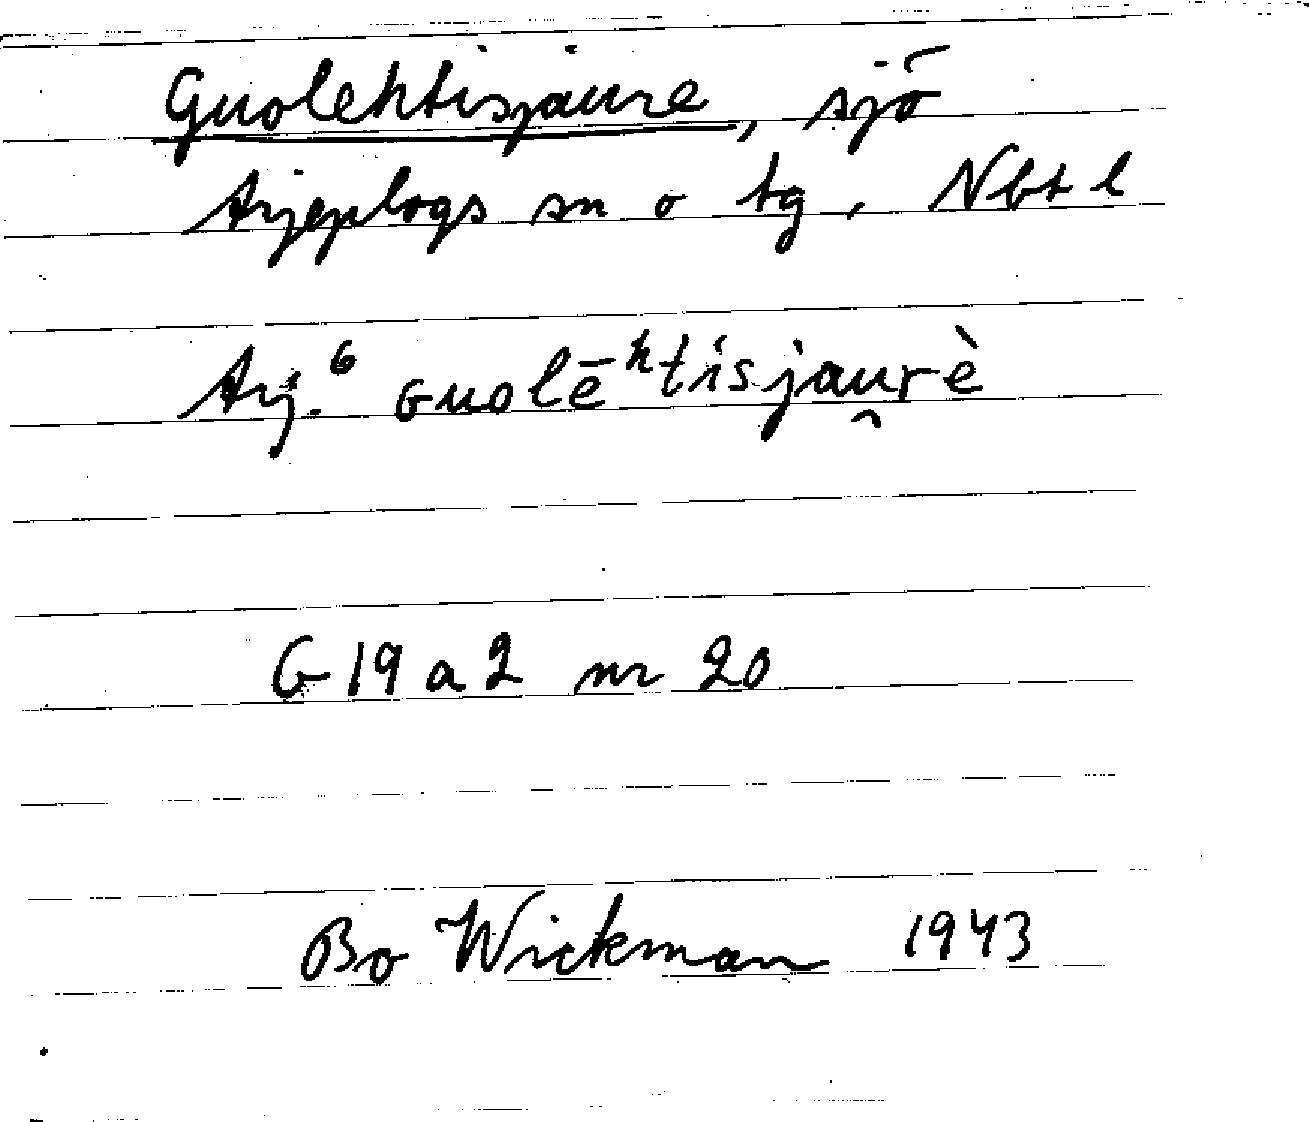 Guolehtisjaure, sjö
Arjeplogs sn o tg, Nbt l
Arj.⁶ ɢuolēʰtisjau̯rè
G 19 a 2 nr 20
Bo Wickman 1943